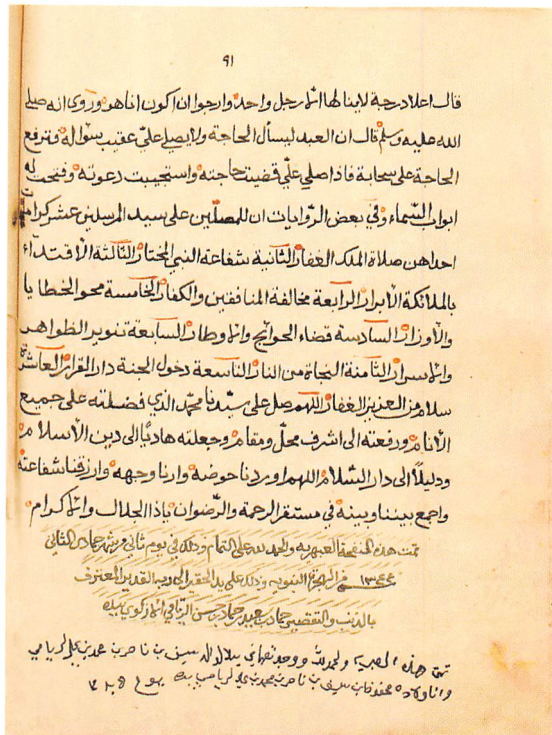 ٩١
قال اعلا درجة لاينالها الا رجل واحد وارجوا ان اكون اناهو وروى انه صلى
الله عليه وسلم قال ان العبد ليسأل الحاجة ولا يصلي عليّ عقيب سؤاله فترفع
الحاجة على سحابة فاذا صلي عليّ قضيت حاجته واستجيبت دعوته وفتحت له
ابواب السّماء وفي بعض الرّوايات ان للمصلّين على سيد المرسلين عشر كرامات
احداهن صلاة الملك الغفار الثانية شفاعة النبي المختار الثالثة الاقتداء
بالملائكة الأبرار الرابعة مخالفة المنافقين والكفار الخامسة محو الخطايا
والأوزار السادسة قضاء الحوائج والاوطار السابعة تنوير الظواهر
والاسرار الثامنة النجاة من النار التاسعة دخول الجنة دار القرار العاشرة
سلام من العزيز الغفار اللهم صل على سيّدنا محمّد الذي فضلته على جميع
الأنام ورفعته الى اشرف محلّ ومقام وجعلته هاديًا الى دين الأسلام
ودليلاً الى دار السّلام اللهم اوردنا حوضه وارنا وجهه وارزقنا شفاعته
واجمع بيننا وبينه في مستقر الرحمة والرّضوان ياذا الجلال والاكرام
تمت هذه النفحة العبهريه والحمد لله على التمام وذلك في يوم ثاني من شهر جمادى الثاني
من الهجرة النبويه وذلك على يد الحقير الى ربه القدير المعترف
بالذنب والتقصير حماد بن سعيد بن حماد بن حسن الازكوي بيده
تمت هذه ولحمد لله بن ناصر بن
واناولاده بن ناصر بن محمد بيده